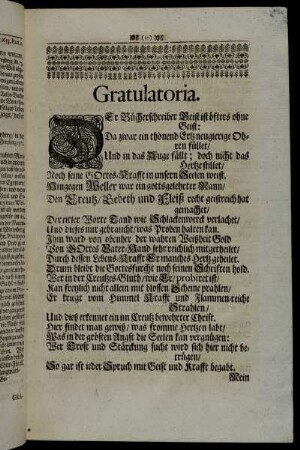 Gratulatoria.
DEr Bücherschreiber Geist ist öffters ohne
Geist:
Da zwar ein thönend Ertz neugierige Oh-
ren füllet/
Und in das Auge fällt; doch nicht das
Hertze stillet/
Noch seine GOttes-Krafft in unsern Seelen weist.
Hingegen Weller war ein gottsgelehrter Mann/
Den Creutz/ Gebeth und Fleiß recht geistreich hat
gemachet/
Der eitler Worte Tand wie Schlackenwerck verlachet/
Und dieses nur gebraucht/ was Proben halten kan.
Ihm ward von obenher der wahren Weißheit Gold
Von GOttes Vater-Hand sehr reichlich mitgetheilet/
Durch dessen Lebens-Krafft Er manches Hertz geheilet.
Drum bleibt die Gottesfurcht noch seinen Schriften hold.
Wer in der Creutzes-Gluth/ wie Er/ probiret ist/
Kan freylich nicht allein mit blossen Scheine prahlen/
Er kriegt vom Himmel Krafft und Flammen-reiche
Strahlen/
Und dieß erkennet ein im Creutz bewehrter Christ.
Hier findet man gewiß/ was fromme Hertzen labt/
Was in der grösten Angst die Seelen kan vergnügen:
Wer Trost und Stärckung sucht wird sich hier nicht be-
trügen/
So gar ist ieder Spruch mit Geist und Krafft begabt.
Mein